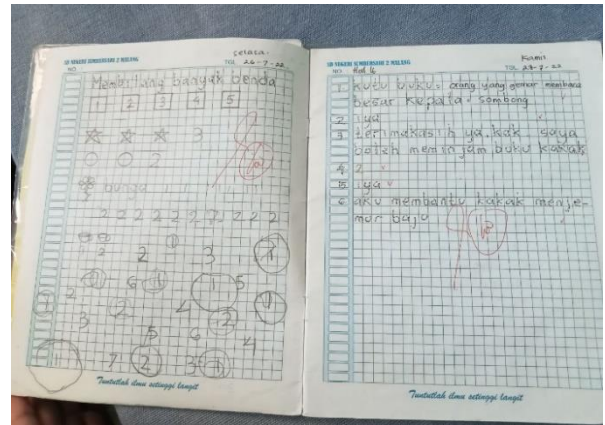 SD NEGERI SUMBERSARI 2 MALANG
Selasa.
NO.
TGL. 26-7-22
Membilang banyak benda
1 2 3 4 5
3
2
bunga
2 2 2 2 2 2 2 2 2 2
2 2 3 1
6 1 1 5
1 2 2 4 2 1
3 5 6 4
1 7 2 3 1
Tuntutlah ilmu setinggi langit
SD NEGERI SUMBERSARI 2 MALANG
Kamis
NO. Hal 16
TGL. 28-7-22
1 kutu buku: orang yang gemar membaca
besar kepala: sombong
2 iya
3 terimakasih ya, kak saya
boleh meminjam buku kakak
4 2
5 iya
6 aku membantu kakak menje-
mur baju
Tuntutlah ilmu setinggi langit